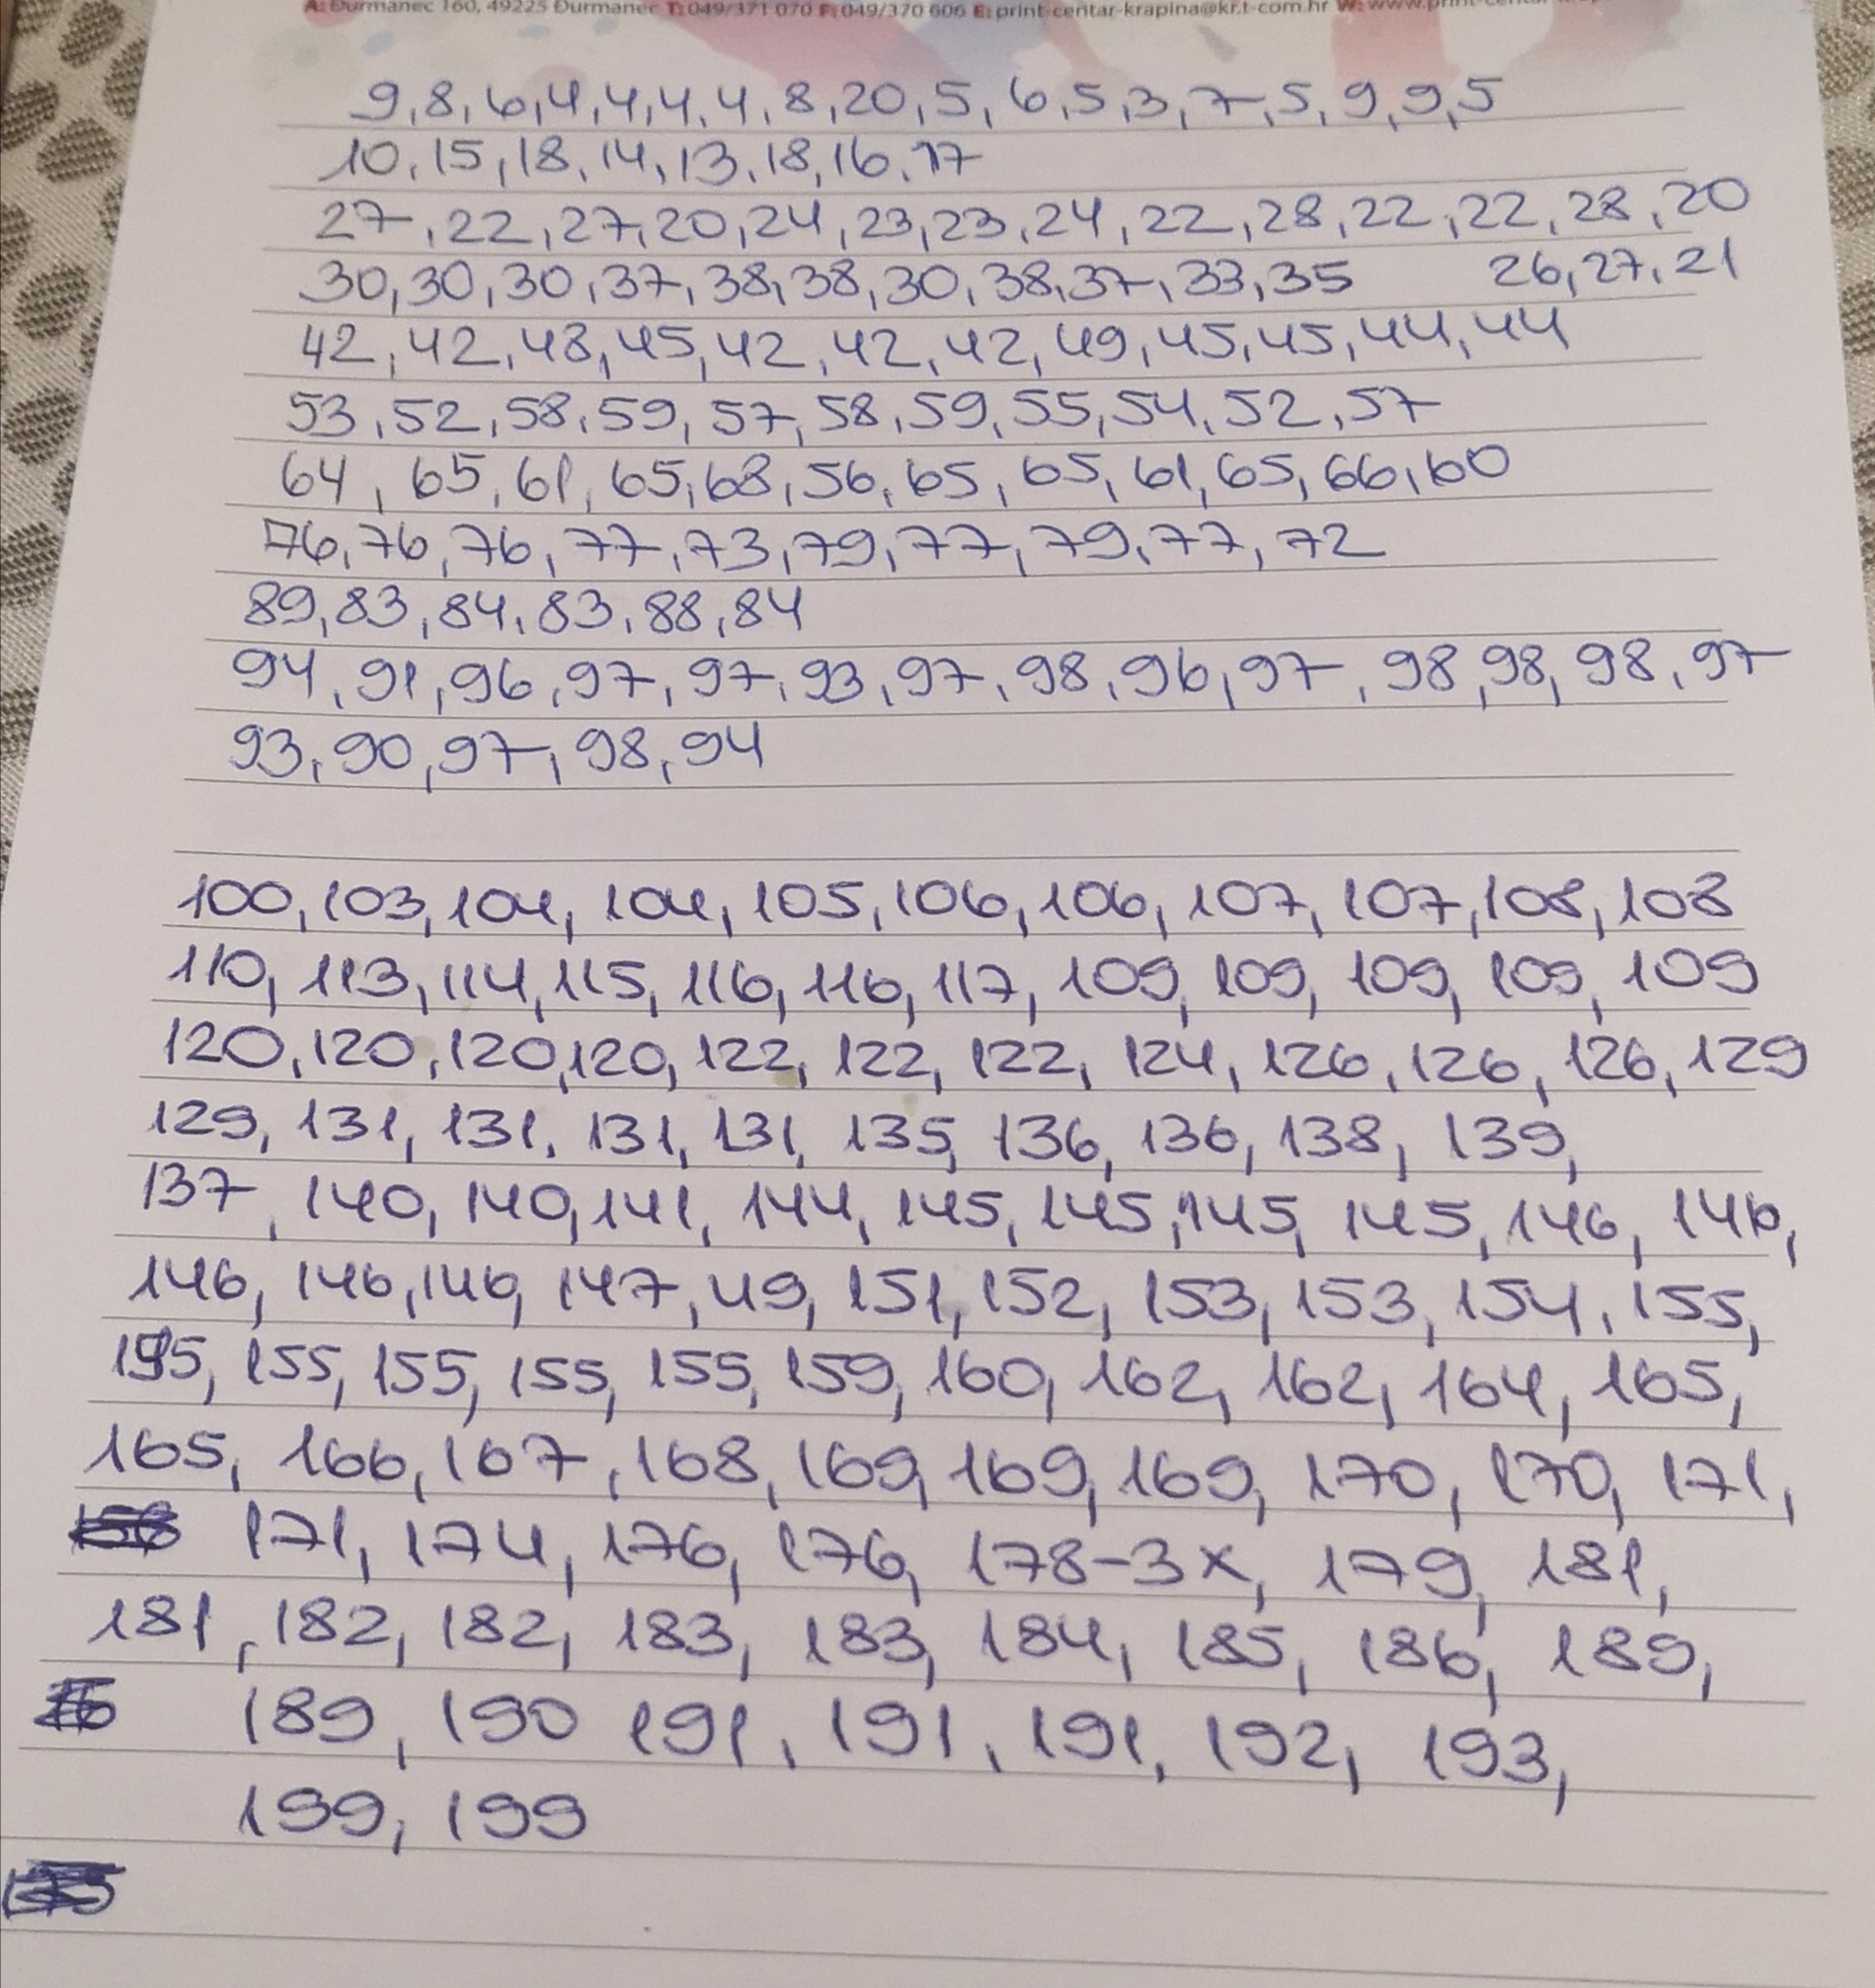 A: Đurmanec 160, 49225 Đurmanec T: 049/371 070 F: 049/370 606 E: print-centar-krapina@kr.t-com.hr W: www.
9,8,6,4,4,4,4,8,20,5,6,5,3,7,5,9,9,5
10,15,18,14,13,18,16,17
27,22,27,20,24,23,23,24,22,28,22,22,28,20
30,30,30,37,38,38,30,38,37,33,35 26,27,21
42,42,48,45,42,42,42,49,45,45,44,44
53,52,58,59,57,58,59,55,54,52,57
64,65,61,65,68,56,65,65,61,65,66,60
76,76,76,77,73,79,77,79,77,72
89,83,84,83,88,84
94,91,96,97,97,93,97,98,96,97,98,98,98,97
93,90,97,98,94
100,103,104,104,105,106,106,107,107,108,108
110,113,114,115,116,116,117,109,109,109,109,109
120,120,120,120,122,122,122,124,126,126,126,129
129,131,131,131,131,135,136,136,138,139,
137,140,140,141,144,145,145,145,145,146,146,
146,146,146,147,49,151,152,153,153,154,155,
155,155,155,155,159,160,162,162,164,165,
165,166,167,168,169,169,169,170,170,171,
171,174,176,176,178-3x,179,181,
181,182,182,183,183,184,185,186,189,
189,190 191,191,191,192,193,
199,199